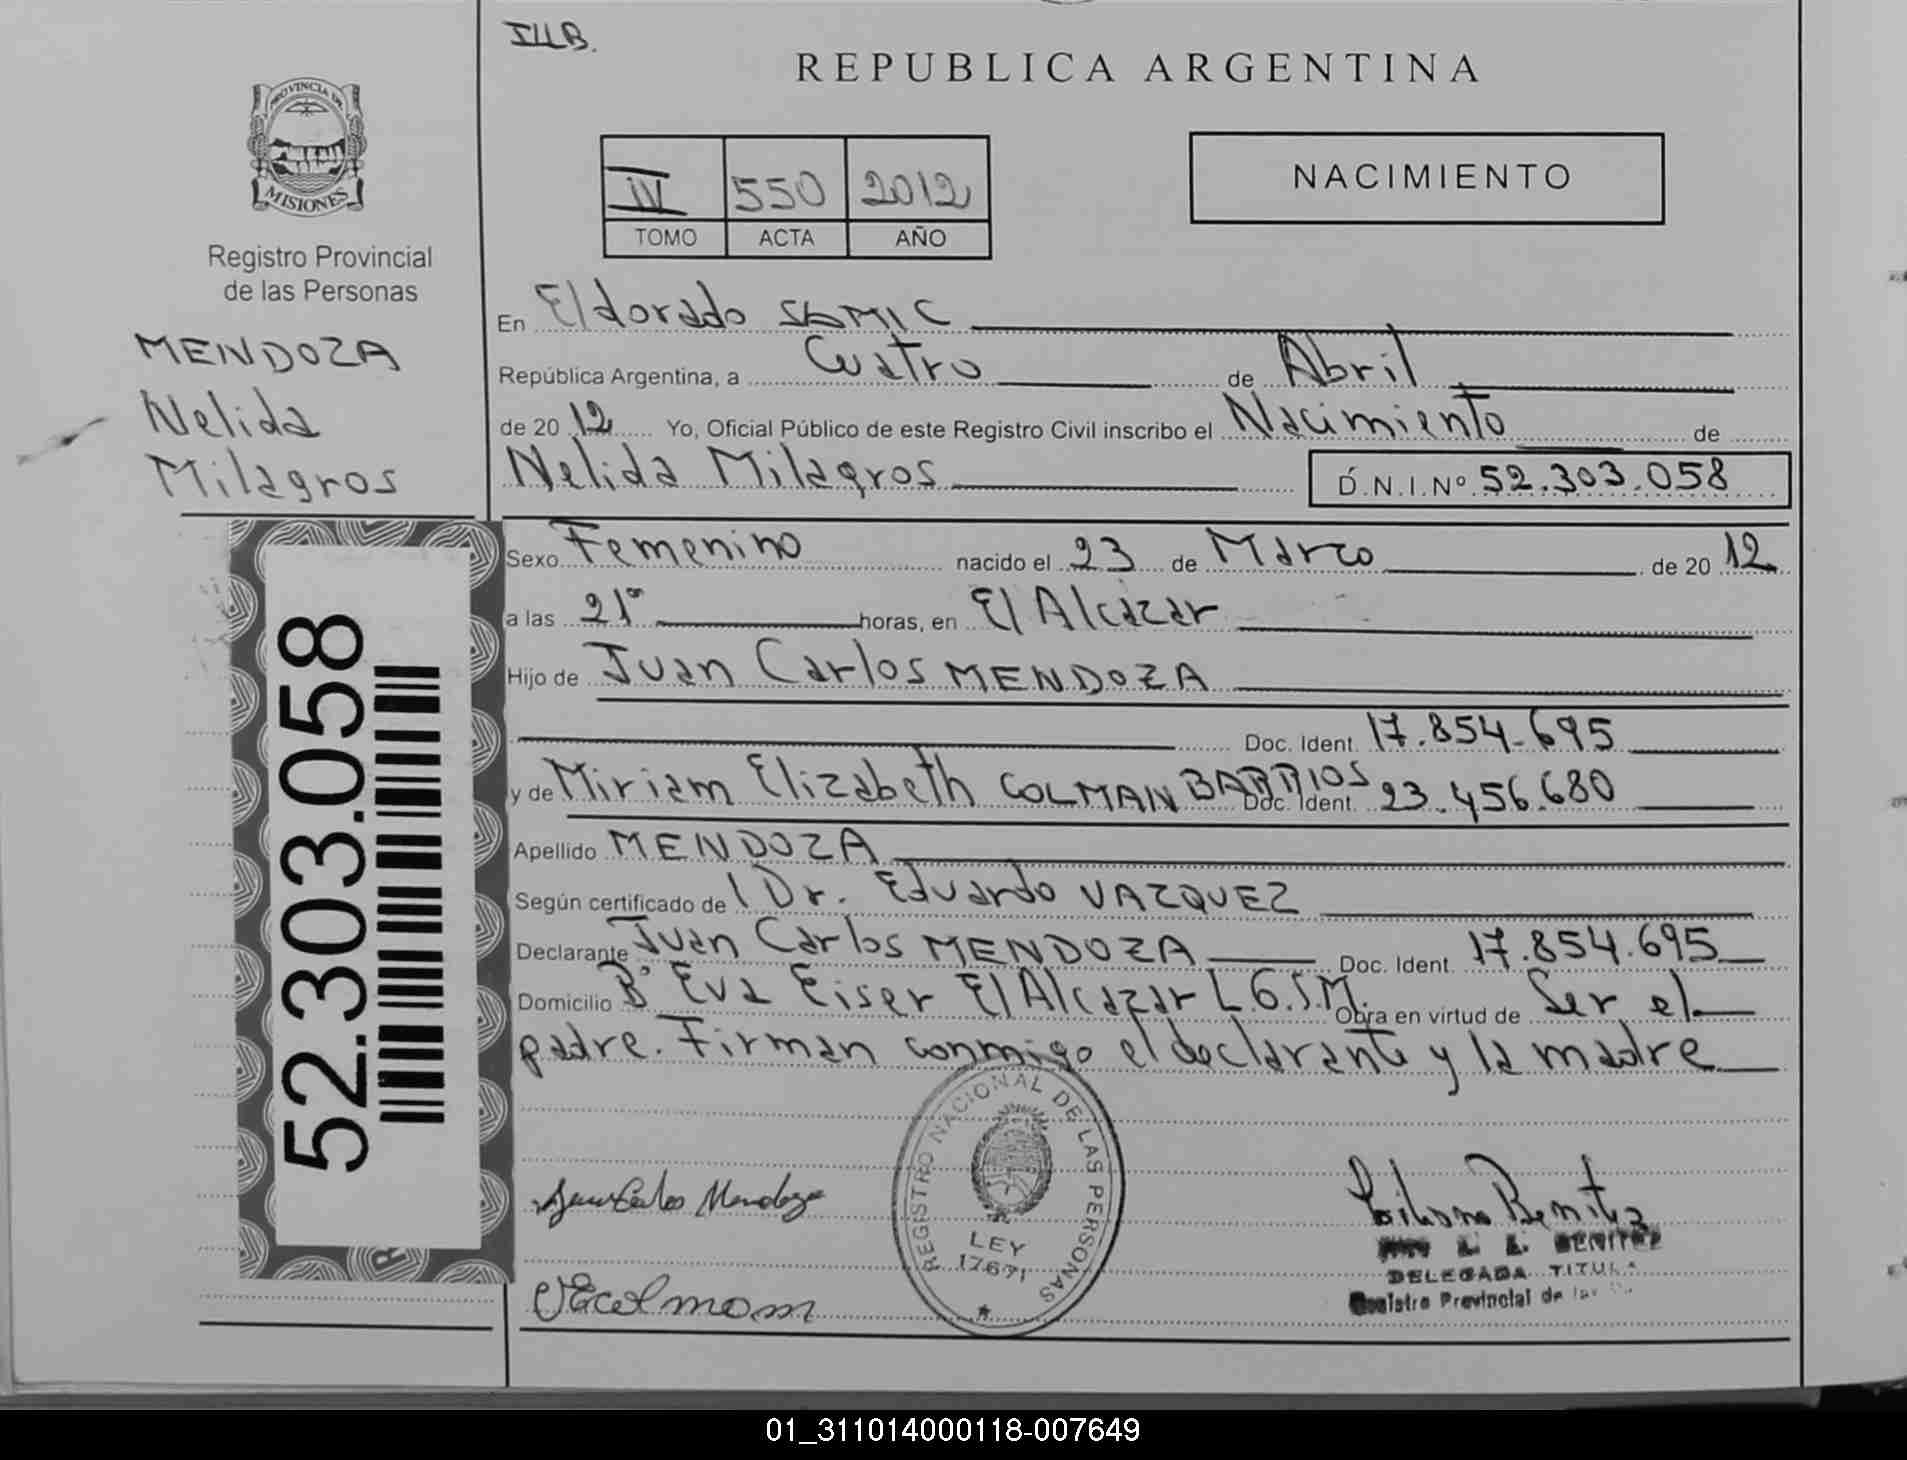 REPUBLICA ARGENTINA
PROVINCIA DE
MISIONES
Registro Provincial
de las Personas
MENDOZA
Nelida
Milagros
52.303.058
IV 550 2012
TOMO ACTA AÑO
NACIMIENTO
En Eldorado SAMIC
República Argentina, a Cuatro de Abril
de 20 12 Yo, Oficial Público de este Registro Civil inscribo el Nacimiento de
Nelida Milagros D.N.I.Nº 52.303.058
Sexo Femenino nacido el 23 de Marzo de 20 12
a las 21º horas, en El Alcazar
Hijo de Juan Carlos MENDOZA
Doc. Ident. 17.854.695
y de Miriam Elizabeth COLMAN BARRIOS Doc. Ident. 23.456.680
Apellido MENDOZA
Según certificado de Dr. Eduardo VAZQUEZ
Declarante Juan Carlos MENDOZA Doc. Ident. 17.854.695
Domicilio Bº Eva Eiser El Alcazar L.G.S.M. Obra en virtud de Ser el
padre. Firman conmigo el declarante y la madre
REGISTRO NACIONAL DE LAS PERSONAS
LEY
17671
Juan Carlos Mendoza
Liliana Benitez
BENITEZ
DELEGADA TITULA
Registro Provincial de las
01_311014000118-007649